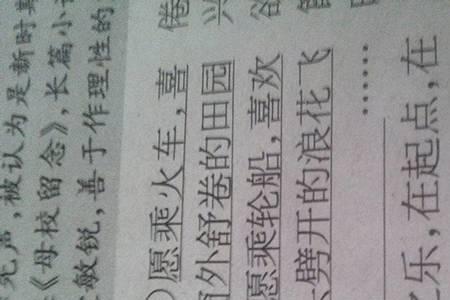 声,被认为是新时期
《母校留念》,长篇小
敏锐,善于作理性的
)愿乘火车,喜
外舒卷的田园
愿乘轮船,喜欢
劈开的浪花飞
……
之乐,在起点,在
倦
兴